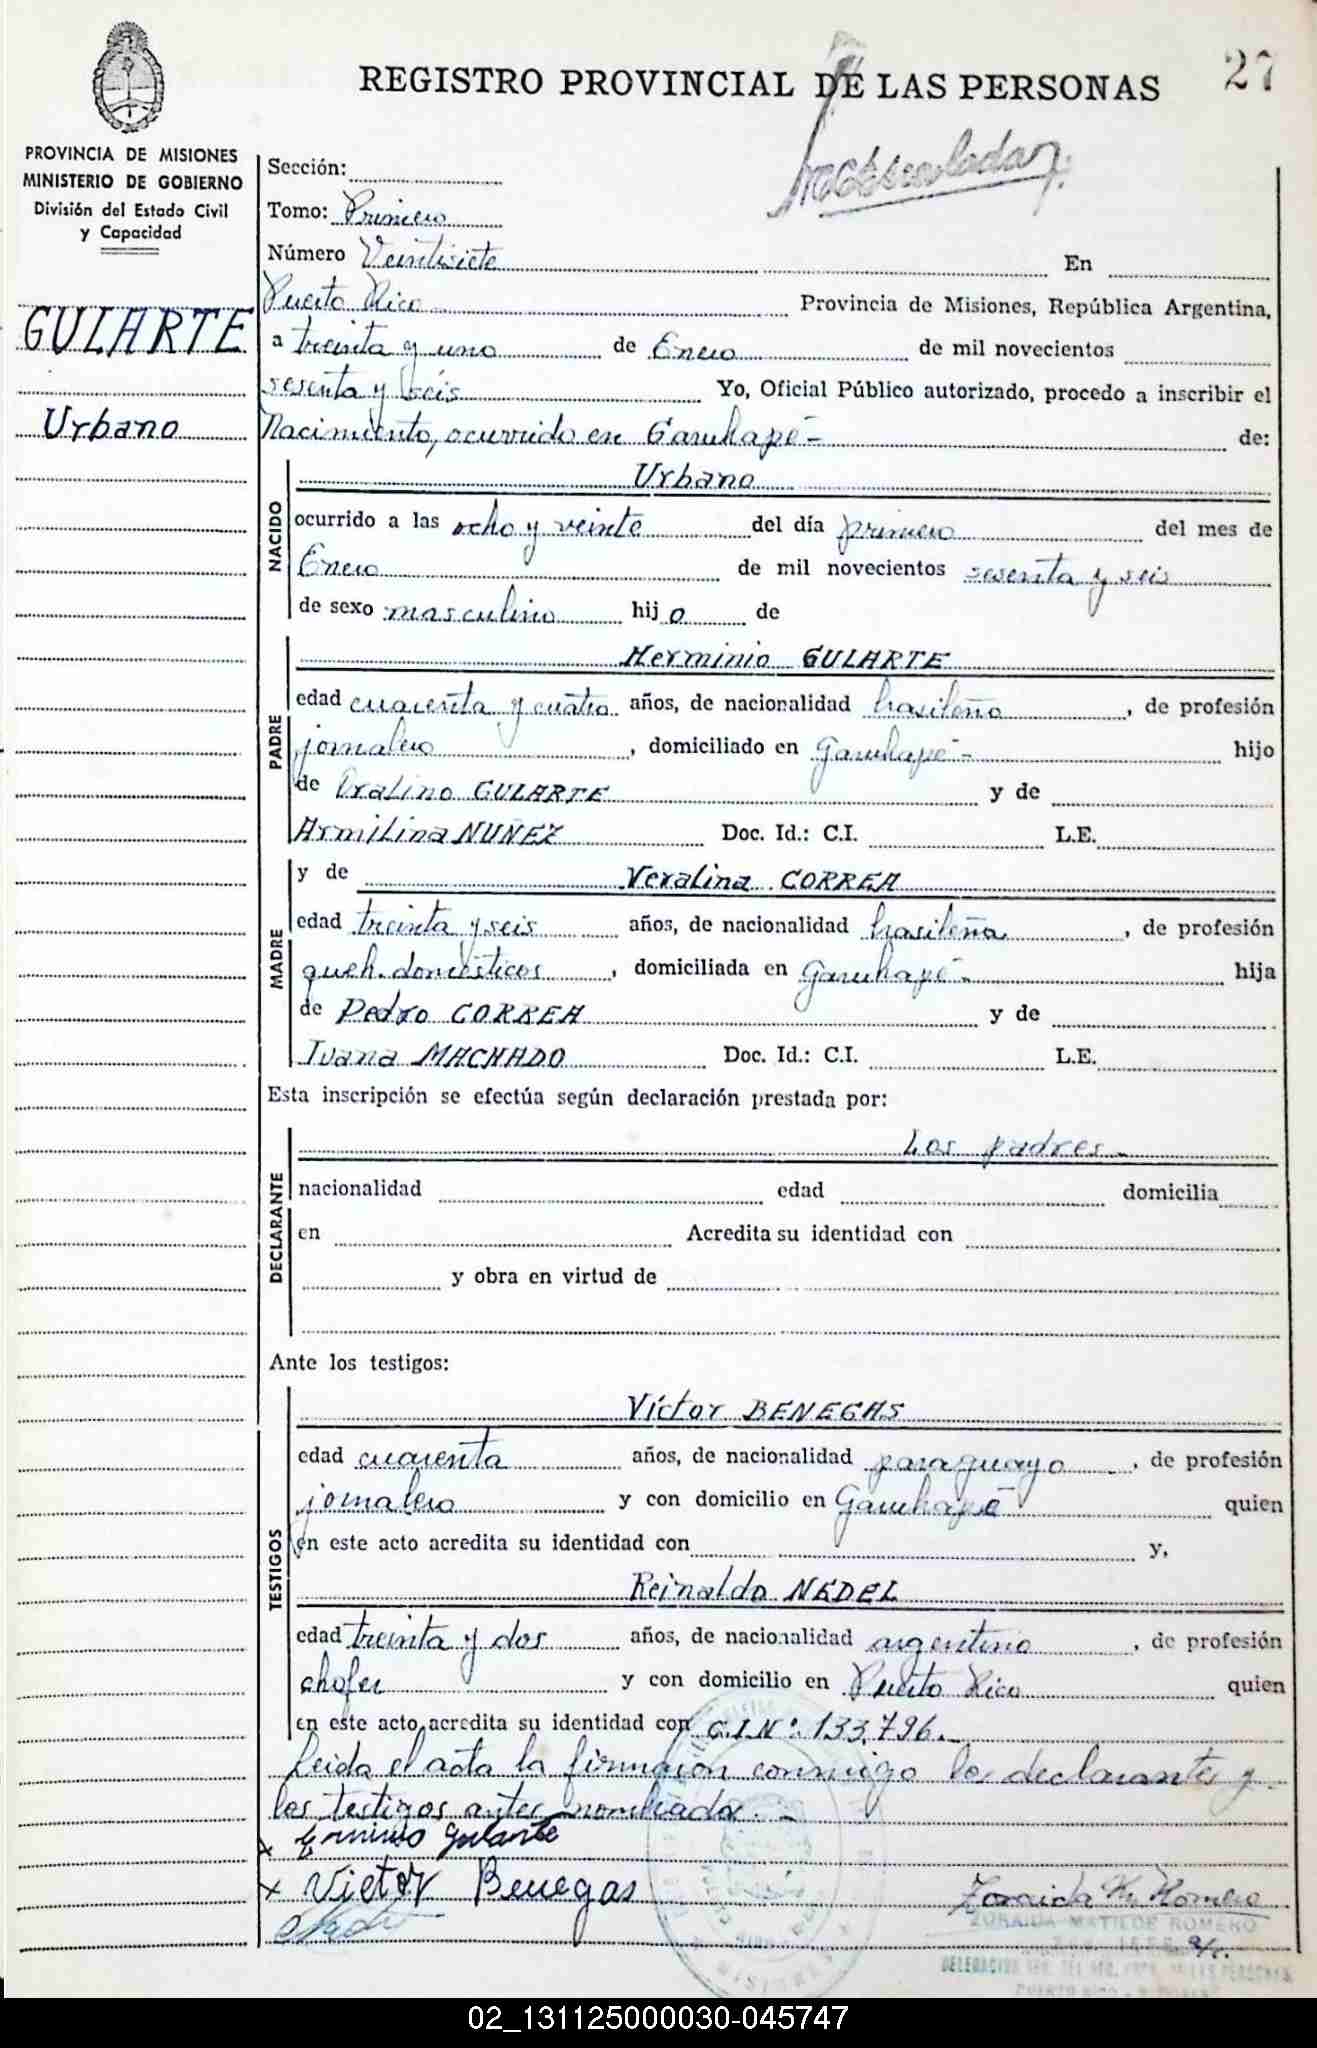 27
REGISTRO PROVINCIAL DE LAS PERSONAS
PROVINCIA DE MISIONES
MINISTERIO DE GOBIERNO
División del Estado Civil
y Capacidad
GULARTE
Urbano
Sección:
Tomo: Primero
Número Veintisiete En
Puerto Rico Provincia de Misiones, República Argentina,
a treinta y uno de Enero de mil novecientos
sesenta y seis Yo, Oficial Público autorizado, procedo a inscribir el
Nacimiento, ocurrido en Garuhapé - de:
NACIDO
Urbano
ocurrido a las ocho y veinte del día primero del mes de
Enero de mil novecientos sesenta y seis
de sexo masculino hijo de
PADRE
Herminio GULARTE
edad cuarenta y cuatro años, de nacionalidad brasileño, de profesión
jornalero, domiciliado en Garuhapé - hijo
de Oralino GULARTE y de
Armilina NUÑEZ Doc. Id.: C.I. L.E.
MADRE
y de Veralina CORREA
edad treinta y seis años, de nacionalidad brasileña, de profesión
queh. domésticos, domiciliada en Garuhapé - hija
de Pedro CORREA y de
Juana MACHADO Doc. Id.: C.I. L.E.
Esta inscripción se efectúa según declaración prestada por:
DECLARANTE
Los padres -
nacionalidad edad domicilia
en Acredita su identidad con
y obra en virtud de
Ante los testigos:
TESTIGOS
Víctor BENEGAS
edad cuarenta años, de nacionalidad paraguayo, de profesión
jornalero y con domicilio en Garuhapé quien
en este acto acredita su identidad con y,
Reinaldo NEDEL
edad treinta y dos años, de nacionalidad argentino, de profesión
chofer y con domicilio en Puerto Rico quien
en este acto acredita su identidad con C.I.Nº 133.796. -
Leida el acta la firmaron conmigo los declarantes y
los testigos antes nombrados. -
x Erminio Gularte
x Victor Benegas
Zoraida M. Romero
ZORAIDA MATILDE ROMERO
02_131125000030-045747